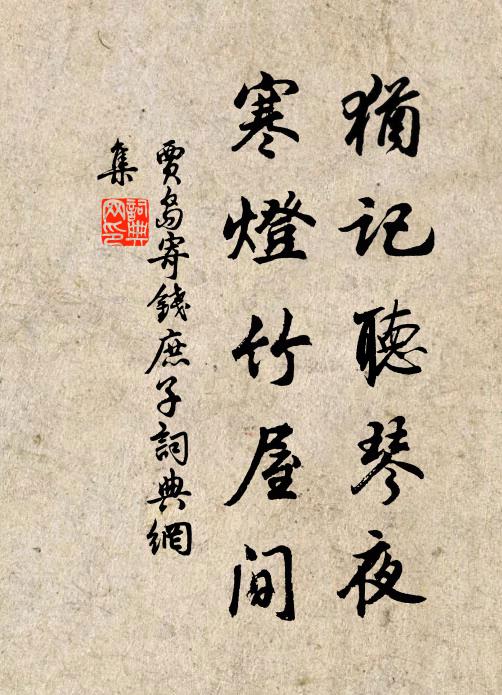 猶記聽琴夜
寒燈竹屋间
賈島寄錢庶子詞典網
集
詞典
网印